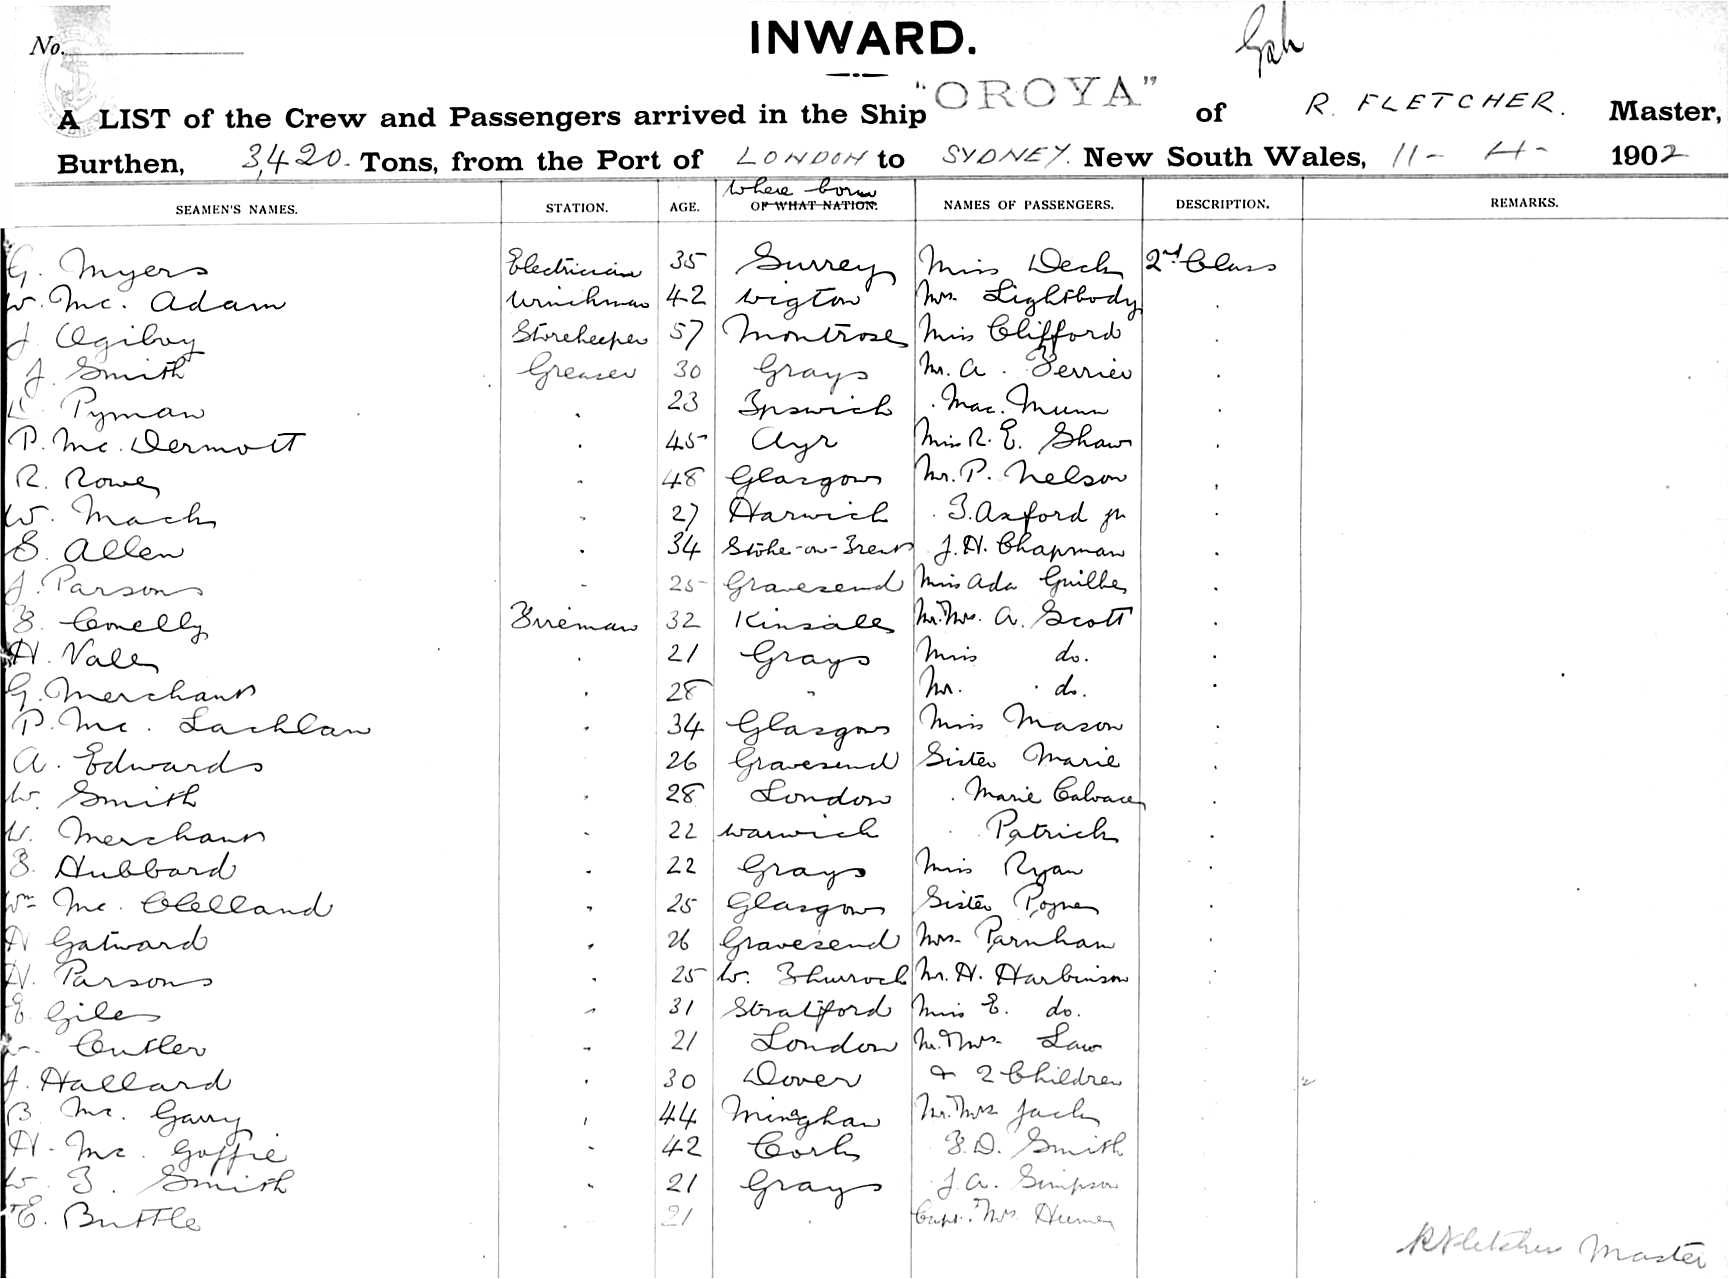 No.
INWARD.
"OROYA"
A LIST of the Crew and Passengers arrived in the Ship of R. FLETCHER. Master,
Burthen, 3,420. Tons, from the Port of LONDON to SYDNEY. New South Wales, 11 - 4 - 1902
where born
SEAMEN'S NAMES. STATION. AGE. OF WHAT NATION. NAMES OF PASSENGERS. DESCRIPTION. REMARKS.
G. Myers Electrician 35 Surrey Miss Deck 2nd Class
W. Mc. Adam Winchman 42 Wigton Mrs. Lightbody
J. Ogilvy Storekeeper 57 Montrose Miss Clifford
J. Smith Greaser 30 Grays Mr. A. Ferrier
Pyman 23 Ipswich Mac. Munn
P. Mc. Dermott 45 Ayr Miss R. E. Shaw
R. Rowe 48 Glasgow Mr. P. Nelson
W. Mack 27 Harwich F. Axford jn
E. Allen 34 Stoke-on-Trent J. H. Chapman
J. Parsons 25 Gravesend Miss Ada
F. Conelly Fireman 32 Kinsale Mr. & Mrs. A. Scott
H. Vale 21 Grays Miss do.
G. Merchant 28 " Mr. do.
P. Mc. Lachlan 34 Glasgow Miss Mason
A. Edwards 26 Gravesend Sister Marie
W. Smith 28 London Marie
W. Merchant 22 Warwick Patrick
F. Hubbard 22 Grays Miss Ryan
Wm Mc. Clelland 25 Glasgow Sister
H Gatward 26 Gravesend Mrs. Parnham
H. Parsons 25 W. Thurrock Mr. H. Harbinson
E. Giles 31 Stratford Miss E. do.
Cutler 21 London Mr. & Mrs. Law
J. Hallard 30 Dover & 2 Children
B. Mc. Garry 44 Mr. & Mrs. Jack
H. Mc. Goffie 42 Cork F. D. Smith
W. F. Smith 21 Grays J. A. Simpson
E. Buttle 21 Capt. & Mrs.
R Fletcher Master